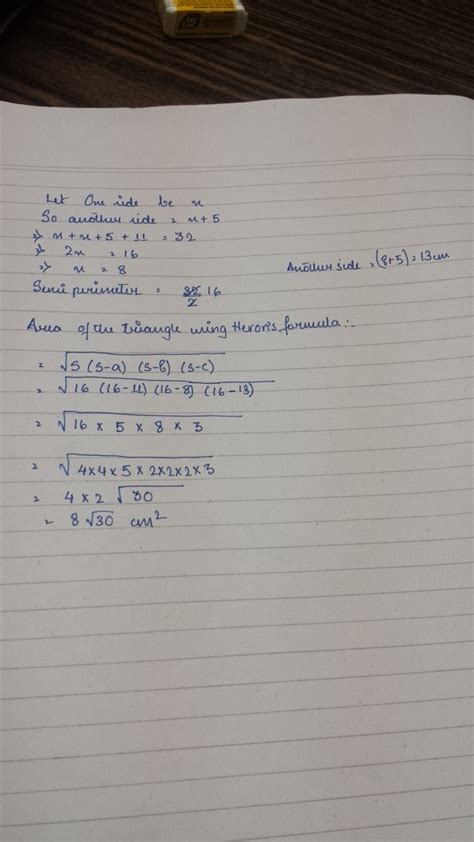 Let One side be x
So another side = x + 5
=> x + x + 5 + 11 = 32
=> 2x = 16
=> x = 8
Another side = (8+5) = 13 cm
Semi perimeter = 32/2 16
Area of the triangle using Heron's formula:-
= √S (S-a) (S-b) (S-c)
= √16 (16-11) (16-8) (16-13)
= √16 × 5 × 8 × 3
= √4×4×5×2×2×2×3
= 4 × 2 √30
= 8 √30 cm²